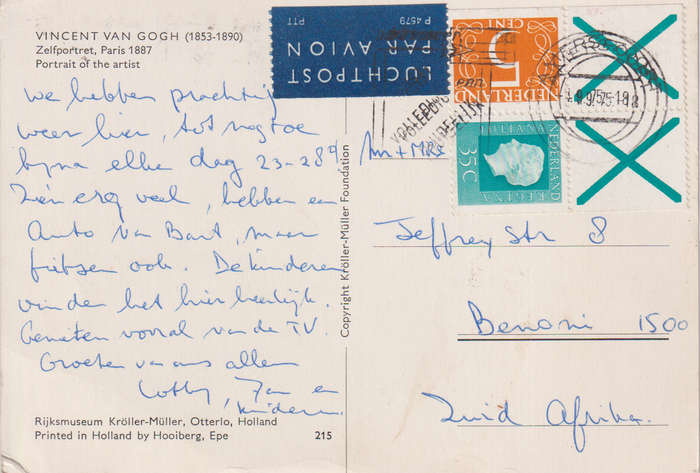 VINCENT VAN GOGH (1853-1890)
Zelfportret, Paris 1887
Portrait of the artist
We hebben prachtig
weer hier, tot nog toe
bijna elke dag 23-28°.
Zien erg veel, hebben een
Auto van Bart, maar
fietsen ook. De kinderen
vinden het hier heerlijk.
Genieten vooral van de TV.
Groeten van ons allen
Lotty, Jan en
kinderen.
Rijksmuseum Kröller-Müller, Otterlo, Holland
Printed in Holland by Hooiberg, Epe
215
Copyright Kröller-Müller Foundation
PTT
P 4579
LUCHTPOST
PAR AVION
5
CENT
NEDERLAND
35c
NEDERLAND
REGINA
Mr + Mrs
Jeffrey Str 8
Benoni 1500
Zuid Afrika.